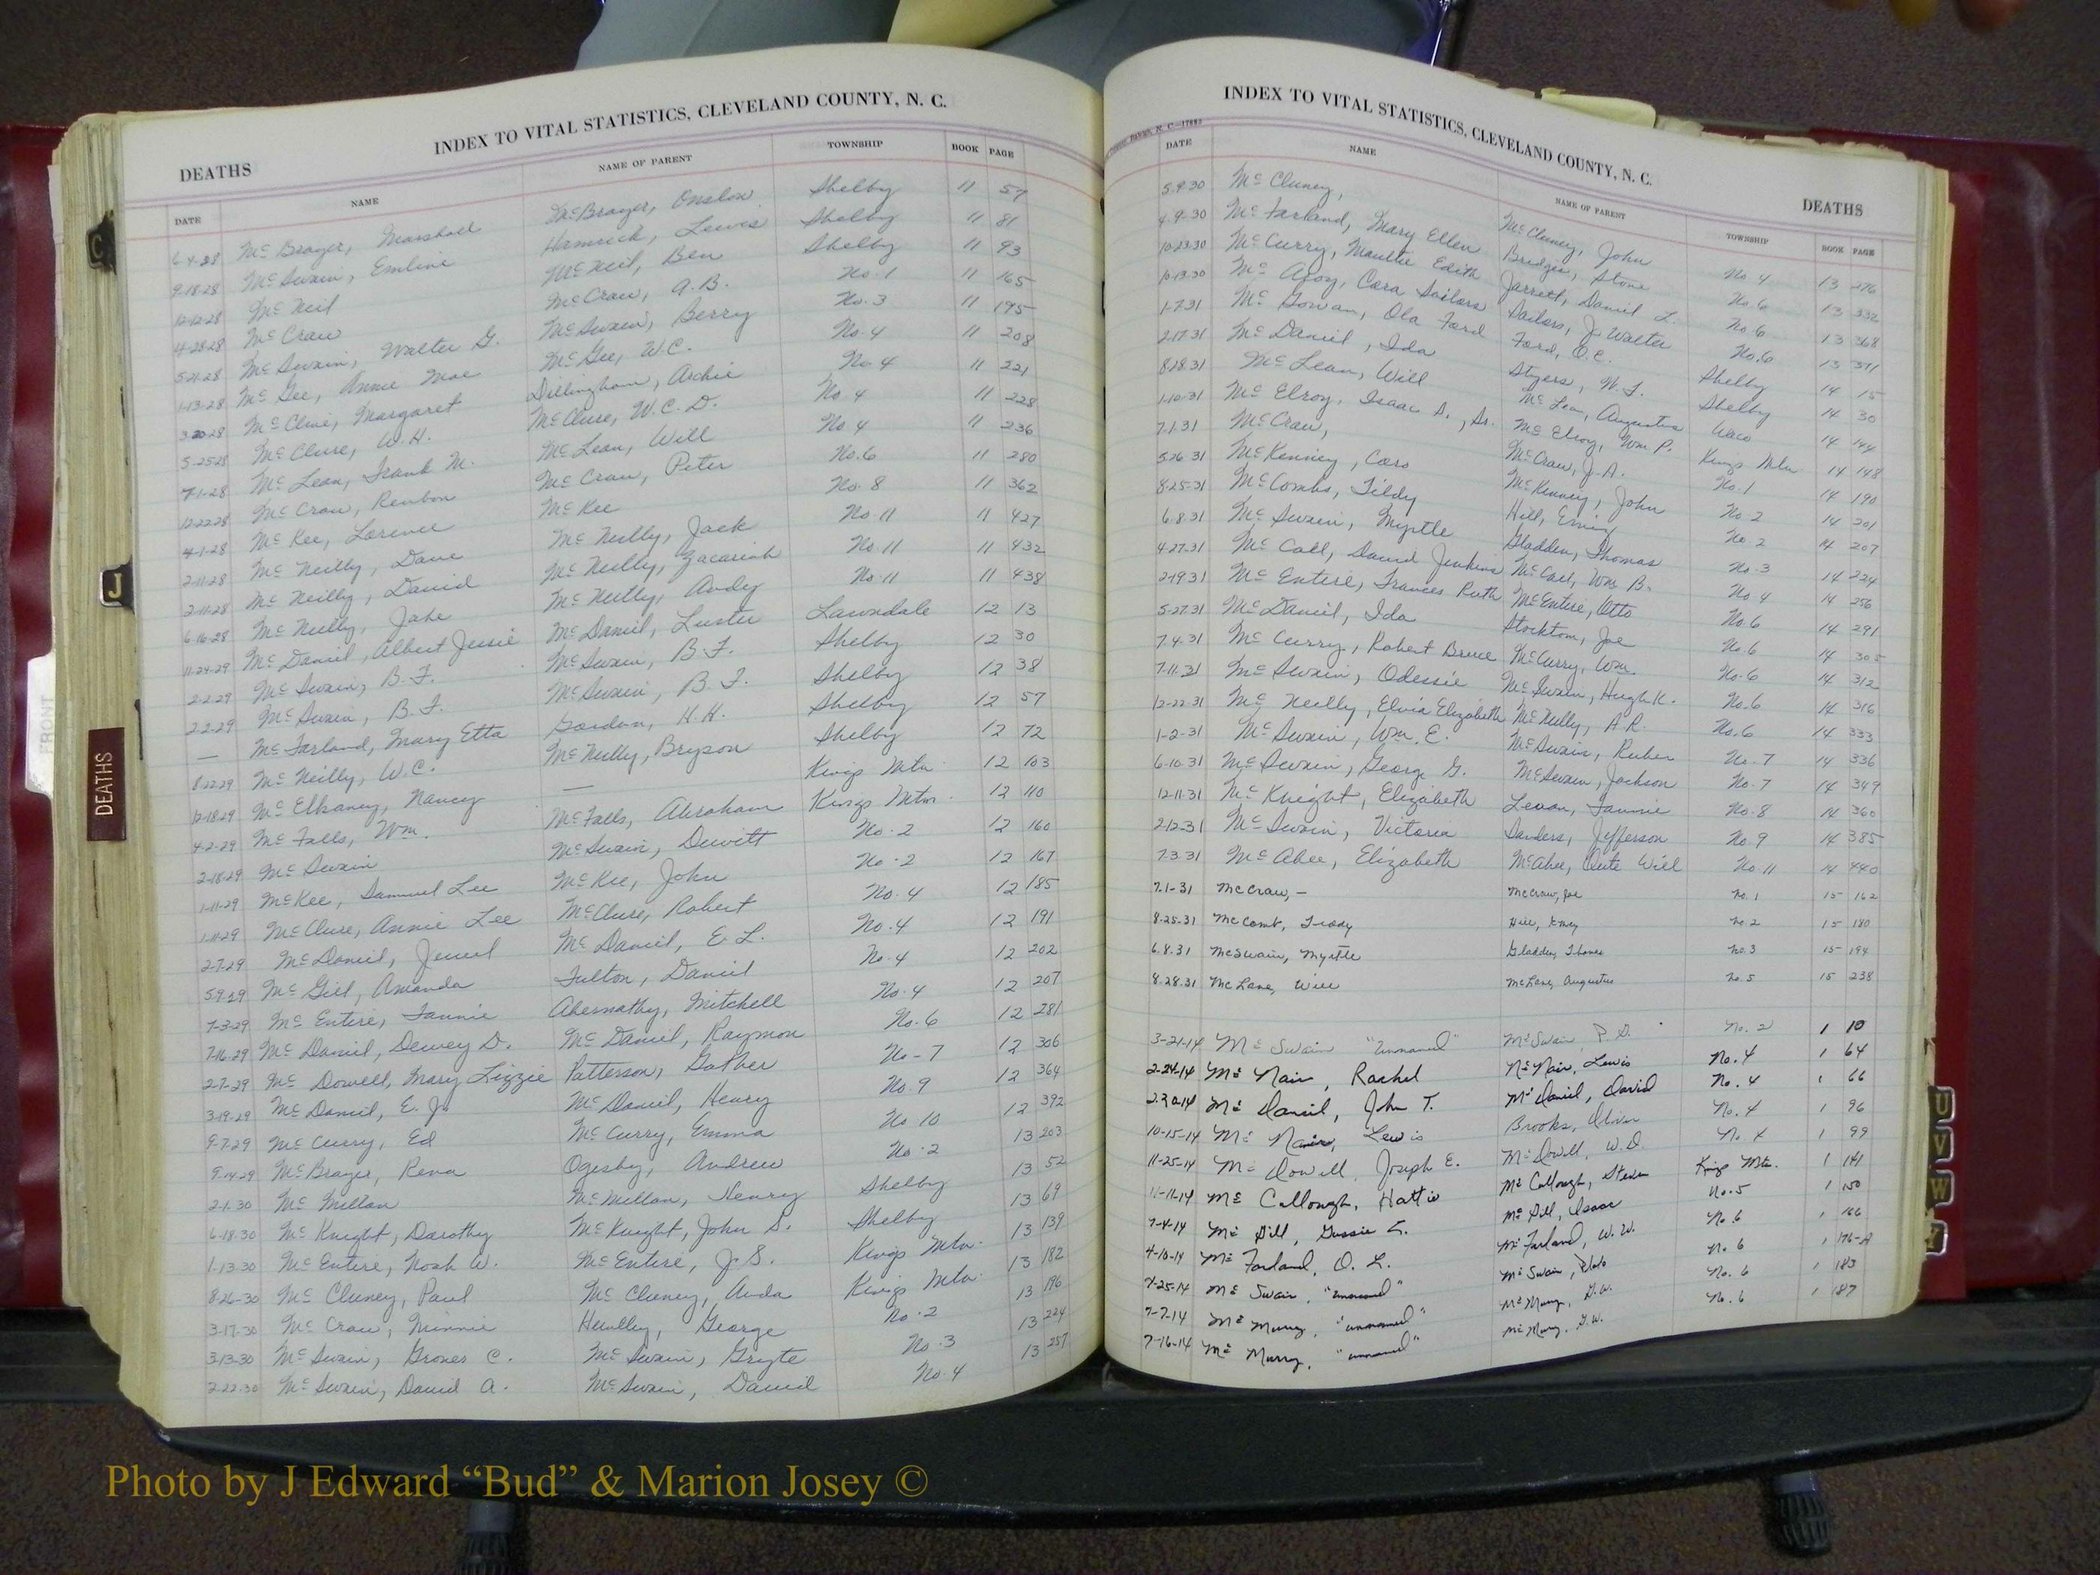 INDEX TO VITAL STATISTICS, CLEVELAND COUNTY, N. C.
DEATHS
DATE NAME NAME OF PARENT TOWNSHIP BOOK PAGE
6-4-28 McBrayer, Marshall McBrayer, Onslow Shelby 11 57
9-18-28 McSwain, Emline Hamrick, Lewis Shelby 11 81
12-12-28 McNeil McNeil, Ben Shelby 11 93
4-28-28 McCraw McCraw, A.B. No.1 11 165
5-21-28 McSwain, Walter G. McSwain, Berry No.3 11 195
1-13-28 McGee, Annie Mae McGee, W.C. No.4 11 208
3-20-28 McClure, Margaret Dillingham, Archie No.4 11 221
5-25-28 McClure, W.H. McClure, W.C.D. No 4 11 228
7-1-28 McLean, Frank M. McLean, Will No 4 11 236
12-22-28 McCraw, Reubon McCraw, Peter No.6 11 280
4-1-28 McKee, Lorence McKee No.8 11 362
2-11-28 McNeilly, Dave McNeilly, Jack No.11 11 427
2-11-28 McNeilly, David McNeilly, Zacariah No 11 11 432
6-16-28 McNeilly, Jake McNeilly, Andy No 11 11 438
11-24-29 McDaniel, Albert Jessie McDaniel, Luster Lawndale 12 13
2-2-29 McSwain, B.F. McSwain, B.F. Shelby 12 30
2-2-29 McSwain, B.F. McSwain, B.F. Shelby 12 38
— McFarland, Mary Etta Gordon, H.H. Shelby 12 57
8-22-29 McNeilly, W.C. McNeilly, Bryson Shelby 12 72
12-18-29 McElhaney, Nancy — Kings Mtn. 12 103
4-2-29 McFalls, Wm. McFalls, Abraham Kings Mtn. 12 110
2-18-29 McSwain McSwain, Dewitt No.2 12 160
1-11-29 McKee, Sammuel Lee McKee, John No.2 12 167
1-11-29 McClure, Annie Lee McClure, Robert No.4 12 185
2-7-29 McDaniel, Jewel McDaniel, E.L. No.4 12 191
5-9-29 McGill, Amanda Fulton, Daniel No.4 12 202
7-3-29 McEntire, Fannie Abernathy, Mitchell No.4 12 207
7-16-29 McDaniel, Dewey D. McDaniel, Raymon No.6 12 281
2-7-29 McDowell, Mary Lizzie Patterson, Gather No-7 12 306
3-19-29 McDaniel, E. Jr. McDaniel, Henry No.9 12 364
9-7-29 McCurry, Ed McCurry, Emma No 10 12 392
9-14-29 McBrayer, Rena Ogesby, Andrew No.2 13 203
2-1-30 McMillan McMillan, Henry Shelby 13 52
6-18-30 McKnight, Dorothy McKnight, John S. Shelby 13 69
1-13-30 McEntire, Noah W. McEntire, J.S. Kings Mtn. 13 139
8-26-30 McCluney, Paul McCluney, Auda Kings Mtn. 13 182
3-17-30 McCraw, Minnie Huntley, George No.2 13 196
3-13-30 McSwain, Grover C. McSwain, Gryte No.3 13 224
2-22-30 McSwain, David A. McSwain, David No.4 13 257
INDEX TO VITAL STATISTICS, CLEVELAND COUNTY, N. C.
DEATHS
DATE NAME NAME OF PARENT TOWNSHIP BOOK PAGE
5-9-30 McCluney, McCluney, John No 4 13 276
4-9-30 McFarland, Mary Ellen Bridges, Stone No.6 13 332
10-23-30 McCurry, Edith Jarrett, Daniel L. No.6 13 368
10-13-30 Cora Sailors Sailors, J. Walter No.6 13 371
1-7-31 McGowan, Ola Ford Ford, O.C. Shelby 14 15
2-17-31 McDaniel, Ida Styers, W.F. Shelby 14 30
8-28-31 McLean, Will McLean, Augustus Waco 14 144
1-10-31 McElroy, Isaac S., Sr. McElroy, Wm. P. Kings Mtn 14 148
7-1-31 McCraw, McCraw, J.A. No.1 14 190
5-26-31 McKenney, Caro McKinney, John No.2 14 201
8-25-31 McCombs, Tildy Hill, Eming No.2 14 207
6-8-31 McSwain, Myrtle Gladden, Thomas No.3 14 224
4-27-31 McCall, David Jenkins McCall, Wm B. No 4 14 256
2-19-31 McEntire, Frances Ruth McEntire, Otto No.6 14 291
5-27-31 McDaniel, Ida Stockton, Joe No.6 14 305
7-4-31 McCurry, Robert Bruce McCurry, Wm. No.6 14 312
7-11-31 McSwain, Odessie McSwain, Hugh K. No.6 14 316
12-22-31 McNeilly, Elvia Elizabeth McNeilly, A.R. No.6 14 333
1-2-31 McSwain, Wm. E. McSwain, Ruben No.7 14 336
6-10-31 McSwain, George G. McSwain, Jackson No.7 14 349
12-11-31 McKnight, Elizabeth Levan, Fannie No.8 14 360
2-12-31 McSwain, Victoria Sanders, Jefferson No.9 14 385
7-3-31 McAbee, Elizabeth McAbee, Will No.11 14 440
7-1-31 McCraw,— McCraw, Joe No.1 15 162
8-25-31 McComb, Hill, No.2 15 180
6-8-31 McSwain, Myrtle Gladden, Thomas No.3 15 194
8-28-31 McLane, Will McLane, Augustus No.5 15 238
3-21-14 McSwain "unnamed" McSwain, P. G. No.2 1 10
2-24-14 McNair, Rachel McNair, Lewis No.4 1 64
2-20-14 McDaniel, John T. McDaniel, David No.4 1 66
10-15-14 McNair, Lewis Brooks, Oliver No.4 1 96
11-25-14 McDowell, Joseph E. McDowell, W.D. No 4 1 99
11-11-14 McCullough, Hattie McCullough, Steven Kings Mtn. 1 141
7-4-14 McGill, Gussie E. McGill, Isaac No.5 1 150
4-10-14 McFarland, O. L. McFarland, W.W. No.6 1 166
7-25-14 McSwain, "unnamed" McSwain, Plato No 6 1 176-A
7-7-14 McMurry, "unnamed" McMurry, G.W. No.6 1 183
7-16-14 McMurry, "unnamed" McMurry, G.W. No.6 1 187
C
J
DEATHS
FRONT
U
V
W
Y
Photo by J Edward “Bud” & Marion Josey ©